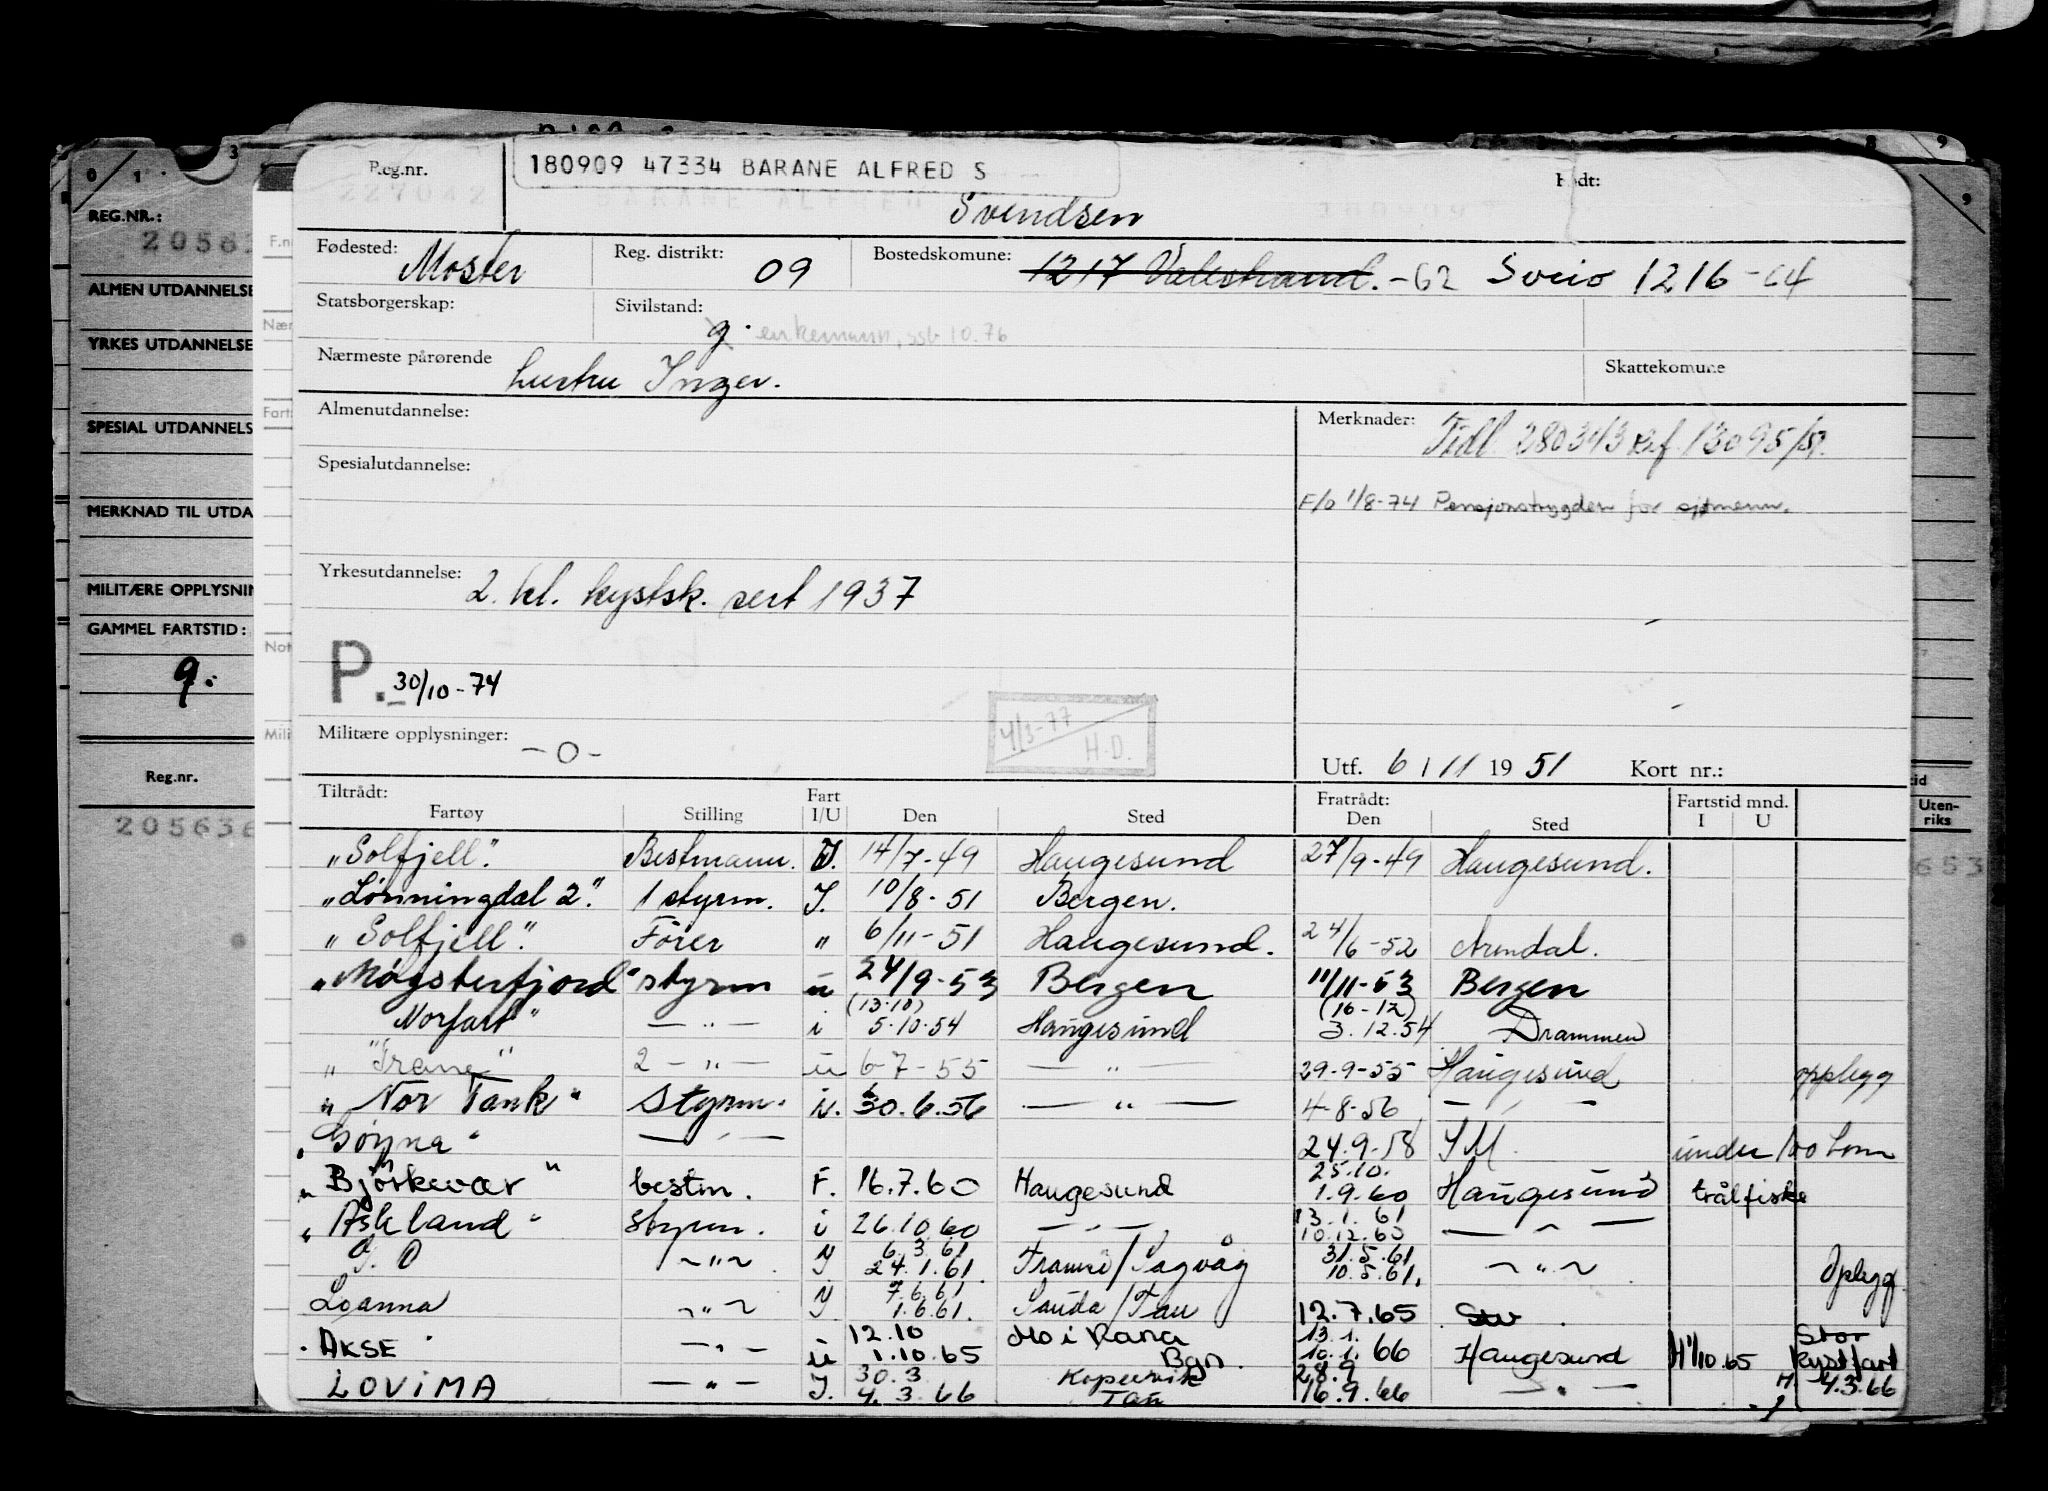 Reg.nr. 180909 47334 BARANE ALFRED S Født:
Svendsen
Fødested: Moster Reg. distrikt: 09 Bostedskomune: 1217 Valestrand. -62 Sveio 1216 -64
Statsborgerskap: Sivilstand: g. enkemann, ssb 10.76
Nærmeste pårørende hustru Inger. Skattekomune
Almenutdannelse: Merknader: Tidl. 280343 Ref. 13095/51.
Spesialutdannelse:
F/o 1/8-74 Pensjonstrygden for sjømenn.
Yrkesutdannelse: 2. kl. kystsk. sert 1937
P. 30/10-74
4/3-77 H.D.
Militære opplysninger: -0-
Utf. 6/11 1951 Kort nr.:
Tiltrådt: Fart Fratrådt: Fartstid mnd.
Fartøy Stilling I/U Den Sted Den Sted I U
"Solfjell". Bestmann. I. 14/7-49 Haugesund 27/9-49 Haugesund.
"Lönningdal 2". 1 styrm. I. 10/8-51 Bergen.
"Solfjell". Förer " 6/11-51 Haugesund. 24/6-52 Arendal.
"Møgsterfjord" styrm u 24/9-53 Bergen 11/11-53 Bergen
(13.10) (16-12)
Norfart" — " — i 5.10.54 Haugesund 3.12.54 Drammen
" "Irene" 2 — " — u 6-7-55 — " — 29-9-55 Haugesund opplegg
" Nor Tank" Styrm. i. 30.6.56 — " — 4-8-56 — " —
— " — 24.9-58 under 100 tonn
25.10.
" Björkevær" bestm. F. 16.7.60 Haugesund 1.9.60 Haugesund trålfiske
13.1.61
" Askland" Styrm. i 26.10.60 — " — 10.12.60 — " —
6.3.61 31.5.61
~ " ~ I 24.1.61. /Sagvåg 10.5.61. ~ " ~ Oplegg
7.6.61
Loanna ~ " ~ I 1.6.61. Sauda/Tau 12.7.65
12.10 Mo i Rana 13.1. Stor
AKSE — " — u 1.10.65 Bgn. 10.1.66 Haugesund H 1/10.65 kystfart
30.3 Kopervik 28.9
LOViMA — " — I. 4.3.66 Tau 16.9.66 — " — H. 4.3.66
REG.NR.:
ALMEN UTDANNELSE
YRKES UTDANNELSE
SPESIAL UTDANNELS
MERKNAD TIL UTDA
MILITÆRE OPPLYSNIN
GAMMEL FARTSTID:
9.
Reg.nr.
205636
Uten-
riks
653